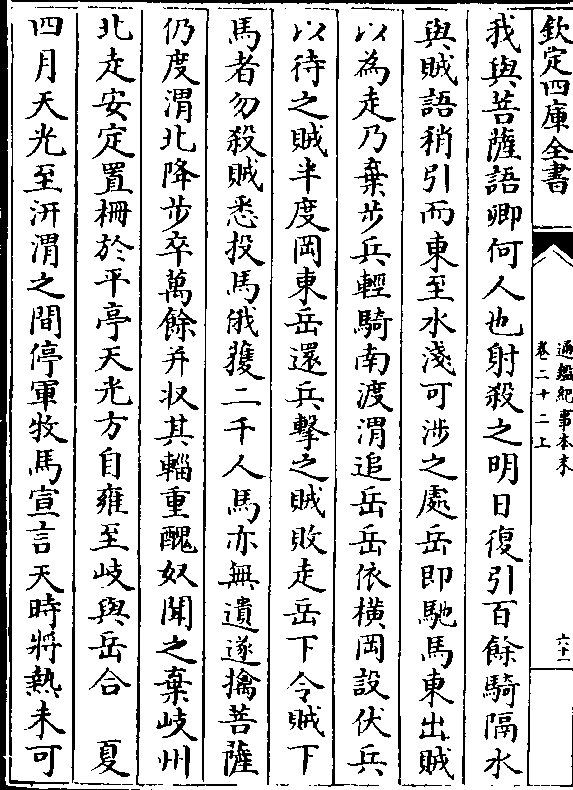 欽定四庫全書
通鑑紀事本末
卷二十二上
六十一
我與菩薩語卿何人也射殺之明日復引百餘騎隔水
與賊語稍引而東至水淺可涉之處岳即馳馬東出賊
以為走乃棄步兵輕騎南渡渭追岳岳依橫岡設伏兵
以待之賊半度岡東岳還兵擊之賊敗走岳下令賊下
馬者勿殺賊悉投馬俄獲二千人馬亦無遺遂擒菩薩
仍度渭北降步卒萬餘并収其輜重醜奴聞之棄岐州
北走安定置柵於平亭天光方自雍至岐與岳合　夏
四月天光至汧渭之間停軍牧馬宣言天時將熱未可